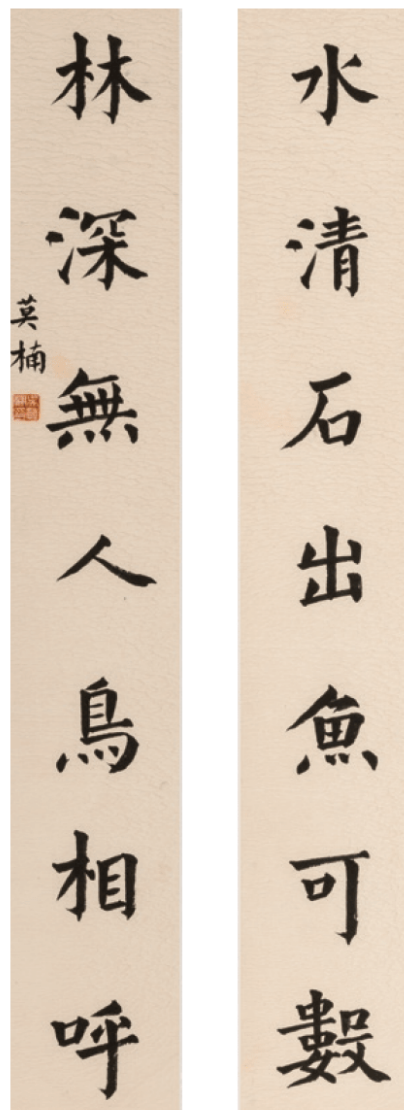 水清石出魚可數
林深無人鳥相呼
莫楠